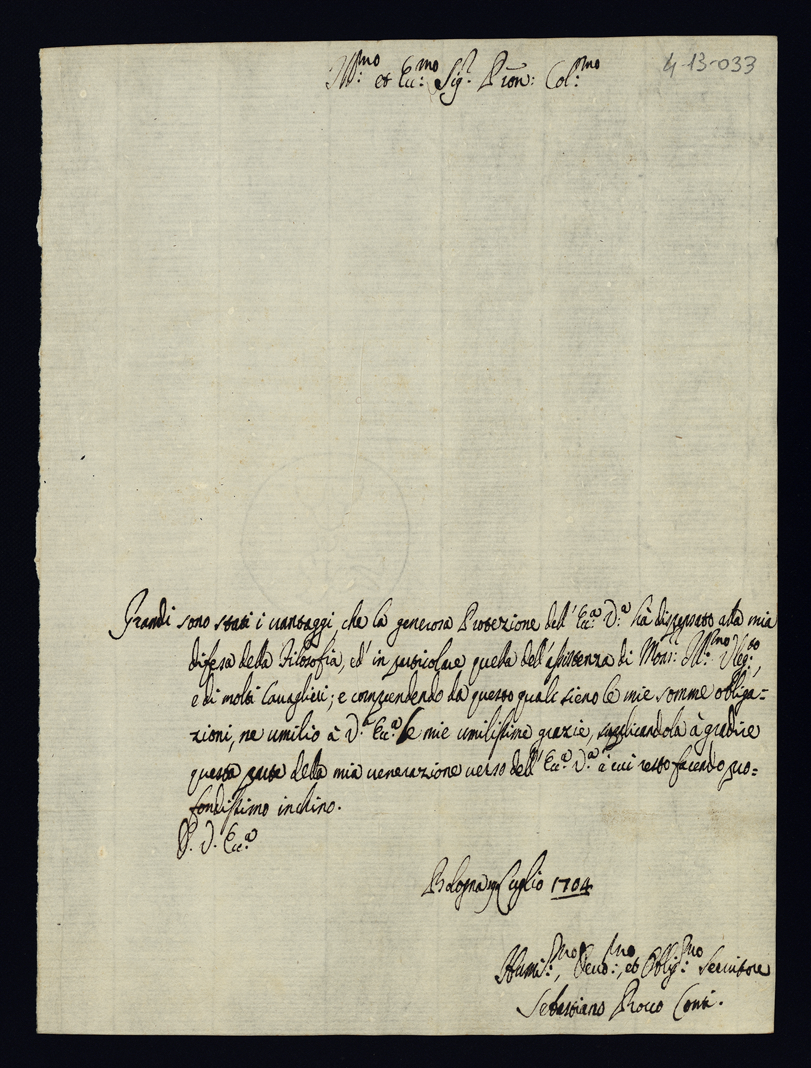 4-13-033
Ill:mo et Ecc:mo Sig:r P̃ron: Col:mo
Grandi sono stati i vantaggi, che la generosa Protezione dell' Ecc:a V:a hà dispensato alla mia
difesa della Filosofia, ed' in particolare quella dell' assistenza di Mons: Ill:mo Vleg:to,
e di molti Cavaglieri; e comprendendo da questo quali sieno le mie somme obliga=
zioni, ne umilio à V:a Ecc:a le mie umilissime grazie, supplicandola à gradire
questa parte della mia venerazione verso dell' Ecc:a V:a à cui resto facendo pro=
fondissimo inchino.
D. V. Ecc:a
Bologna Luglio 1704
Humil:mo, Devo:mo, et Oblig:mo Servitore
Sebastiano Rocco Conti.